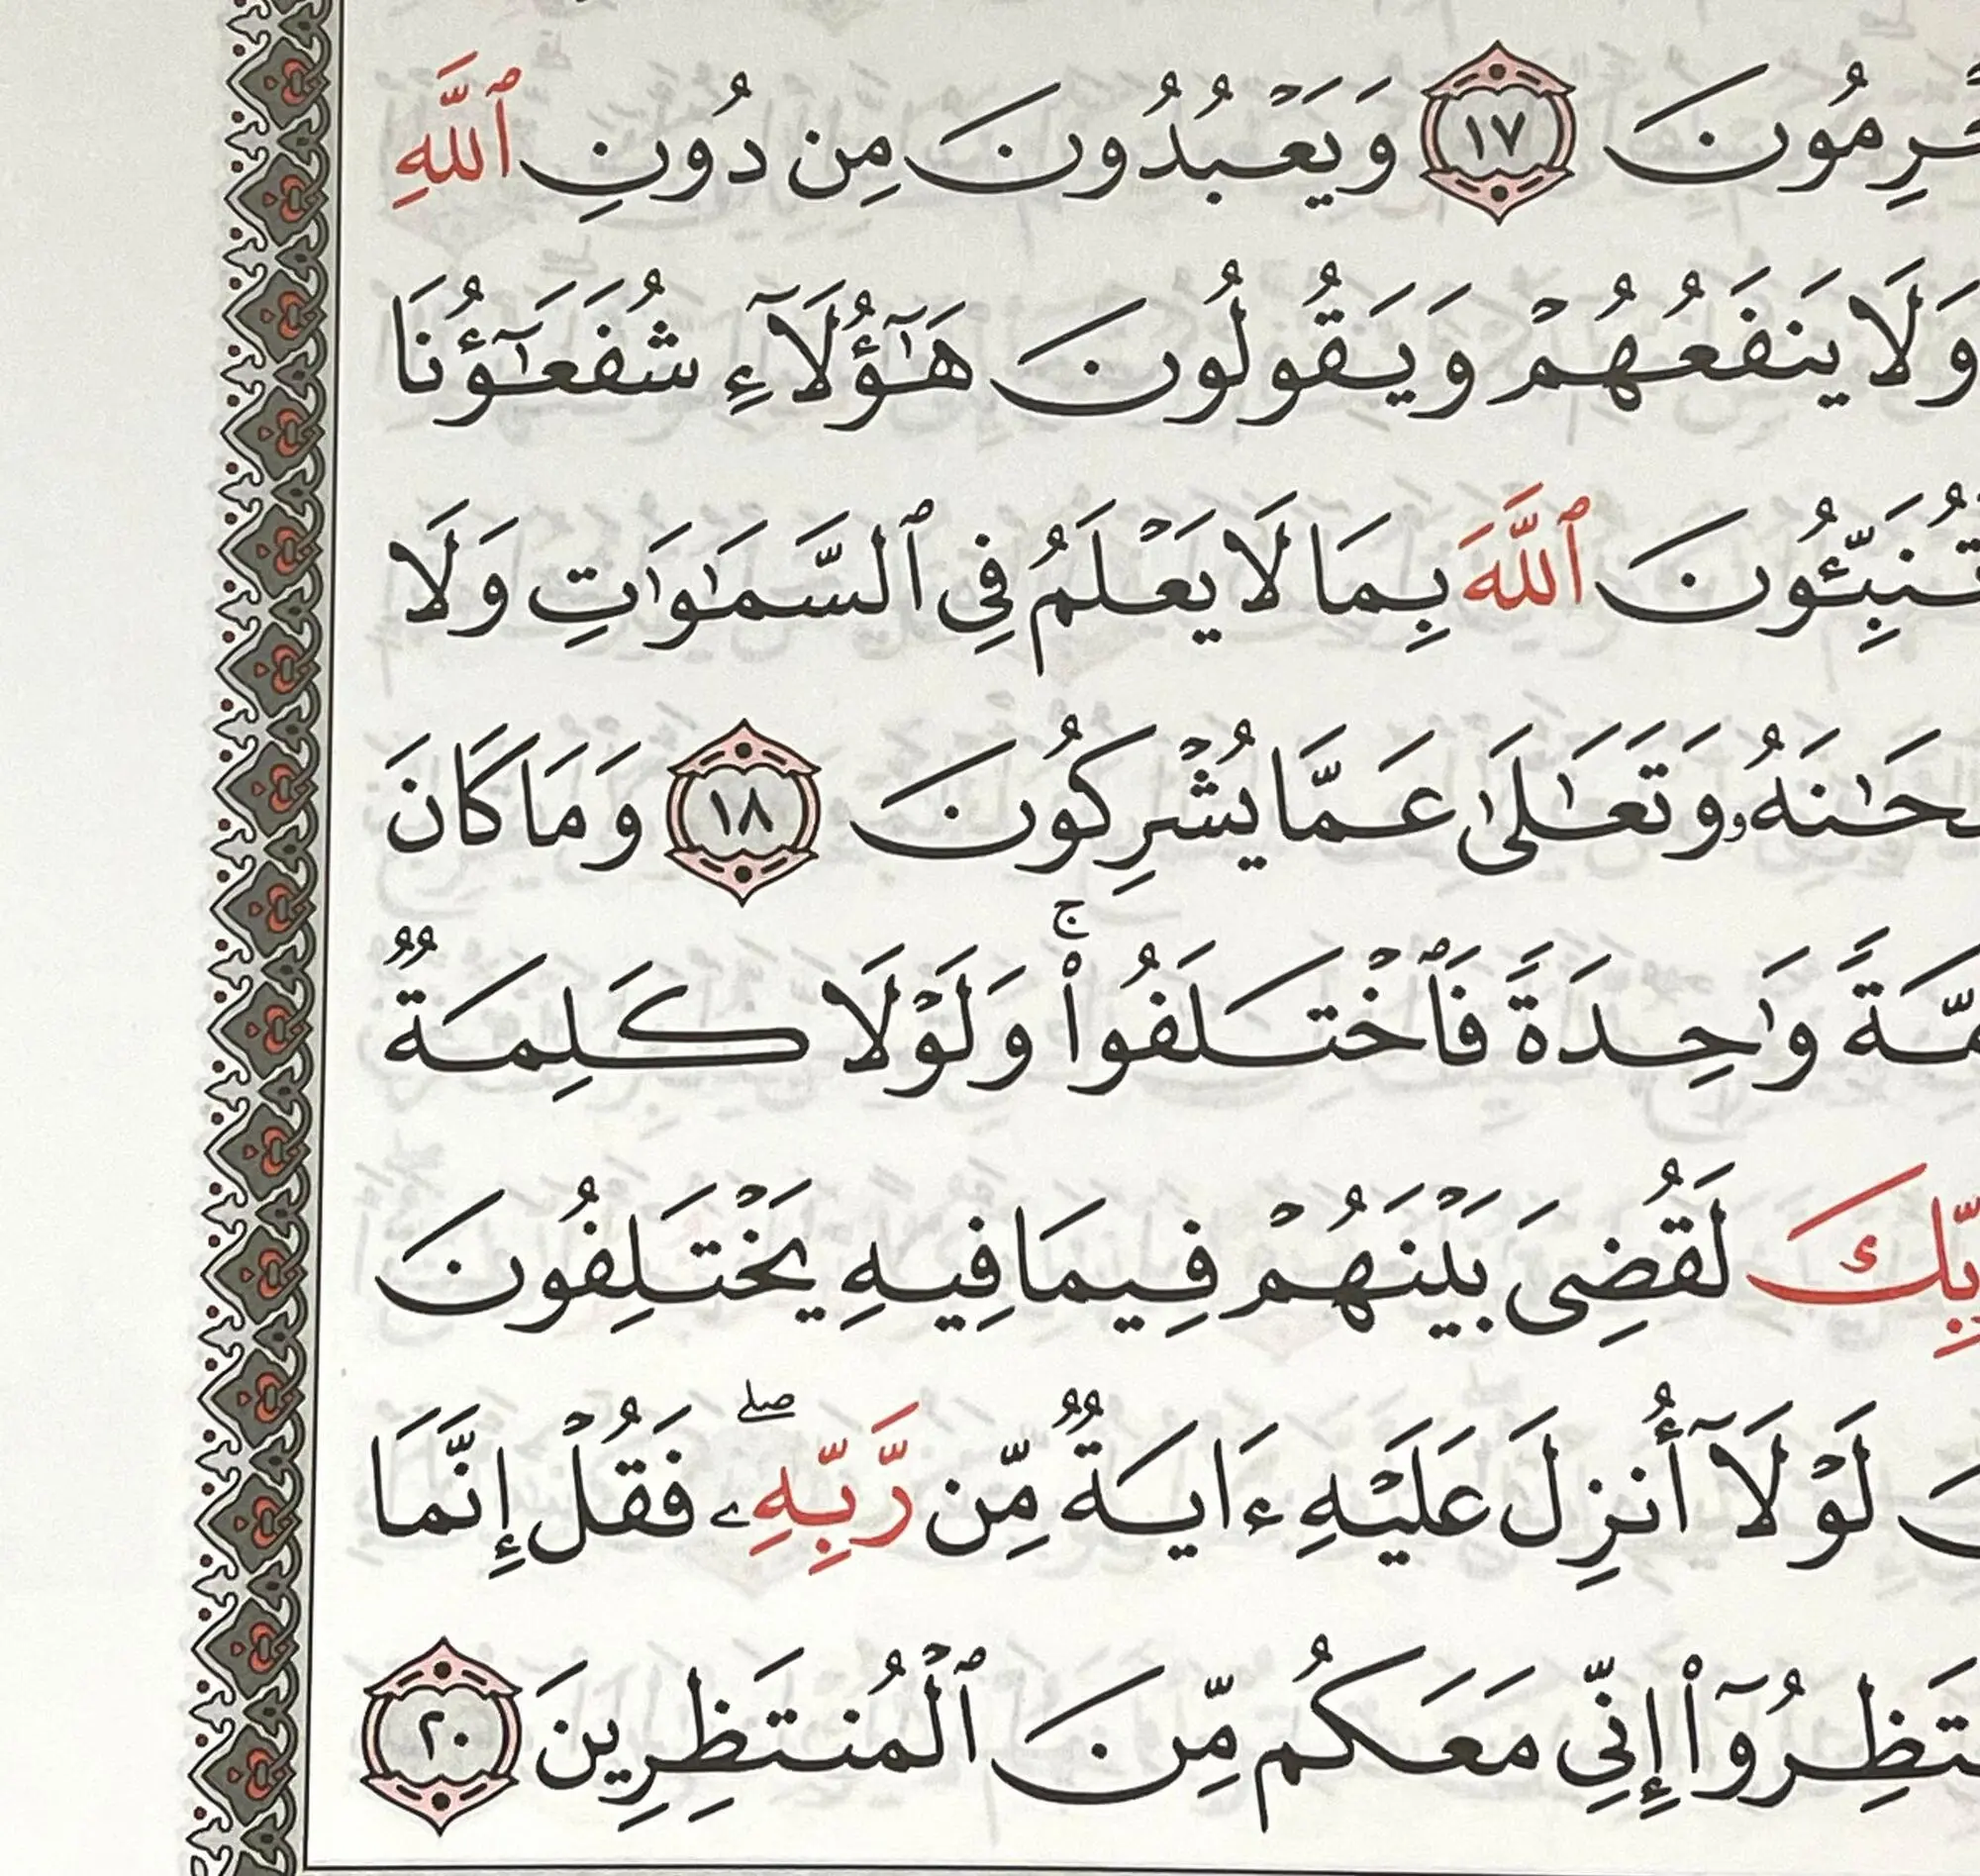 ـرِمُونَ ١٧ وَيَعْبُدُونَ مِن دُونِ ٱللَّهِ
وَلَا يَنفَعُهُمْ وَيَقُولُونَ هَٰٓؤُلَآءِ شُفَعَٰٓؤُنَا
تُنَبِّـُٔونَ ٱللَّهَ بِمَا لَا يَعْلَمُ فِى ٱلسَّمَٰوَٰتِ وَلَا
ـحَٰنَهُۥ وَتَعَٰلَىٰ عَمَّا يُشْرِكُونَ ١٨ وَمَا كَانَ
ـمَّةً وَٰحِدَةً فَٱخْتَلَفُوا۟ ۚ وَلَوْلَا كَلِمَةٌ
ـبِّكَ لَقُضِىَ بَيْنَهُمْ فِيمَا فِيهِ يَخْتَلِفُونَ
ـنَ لَوْلَآ أُنزِلَ عَلَيْهِ ءَايَةٌ مِّن رَّبِّهِۦ ۖ فَقُلْ إِنَّمَا
ـتَظِرُوٓا۟ إِنِّى مَعَكُم مِّنَ ٱلْمُنتَظِرِينَ ٢٠